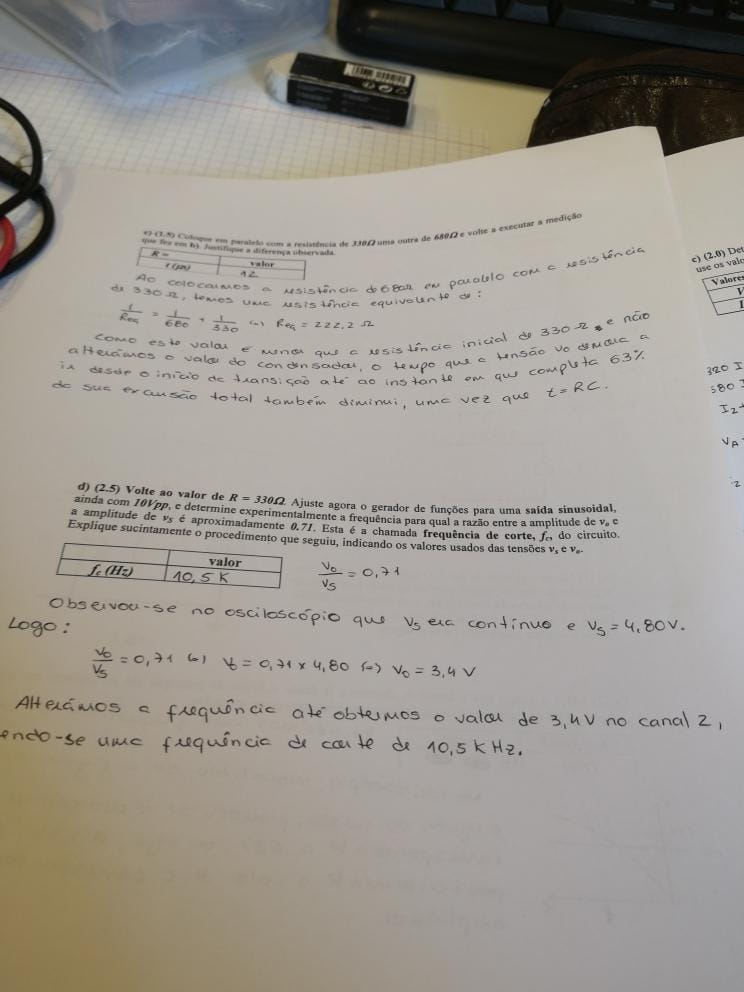 c) (1.5) Coloque em paralelo com a resistência de 330Ω uma outra de 680Ω e volte a executar a medição
que fez em b). Justifique a diferença observada.
R = valor
t (μs) 12
Ao colocarmos a resistência de 680Ω em paralelo com a resistência
de 330Ω, temos uma resistência equivalente de:
1/Req = 1/680 + 1/330 (=) Req = 222,2 Ω
Como este valor é menor que a resistência inicial de 330Ω, e não
alterámos o valor do condensador, o tempo que a tensão Vo demora a
ir desde o início da transição até ao instante em que completa 63%
da sua excursão total também diminui, uma vez que t = RC.
d) (2.5) Volte ao valor de R = 330Ω. Ajuste agora o gerador de funções para uma saída sinusoidal,
ainda com 10Vpp, e determine experimentalmente a frequência para qual a razão entre a amplitude de vo e
a amplitude de vS é aproximadamente 0.71. Esta é a chamada frequência de corte, fc, do circuito.
Explique sucintamente o procedimento que seguiu, indicando os valores usados das tensões vs e vo.
valor
fc (Hz) 10,5 K
Vo/Vs = 0,71
Observou-se no osciloscópio que Vs era contínuo e Vs = 4,80V.
Logo:
Vo/Vs = 0,71 (=) Vo = 0,71 x 4,80 (=) Vo = 3,4 V
Alterámos a frequência até obtermos o valor de 3,4V no canal 2,
endo-se uma frequência de corte de 10,5 kHz.
c) (2.0) Det
use os valo
Valores
V
I
320 I
580 I
I2+
VA